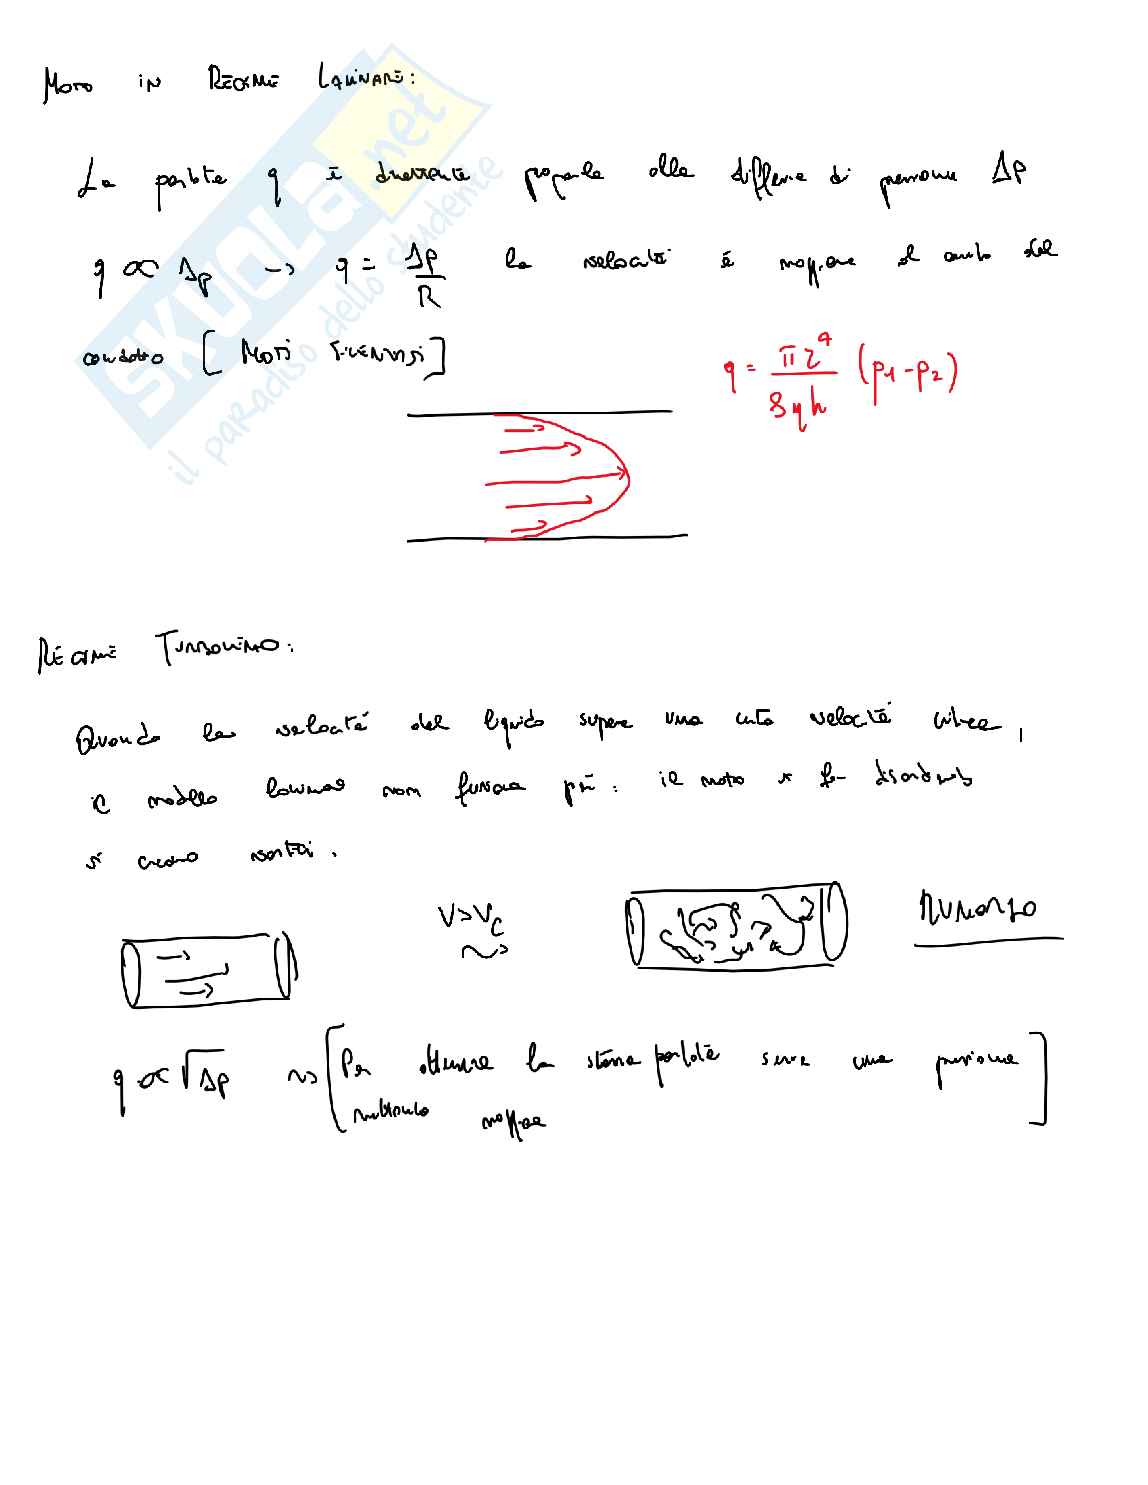 MOTO IN REGIME LAMINARE:
La portata q è direttamente proporzionale alla differenza di pressione Δp
q ∝ Δp → q = Δp/R la velocità è maggiore al centro del
condotto [MOTI SILENZIOSI]
q = πr⁴/8ηh (p1 - p2)
REGIME TURBOLENTO:
Quando la velocità del liquido supera una certa velocità critica,
il modello laminare non funziona più: il moto si fa disordinato
si creano vortici.
V>Vc
RUMOROSO
q ∝ √Δp ⇝ [Per ottenere la stessa portata serve una pressione
maggiore]
SKUOLA.net
il paradiso dello studente